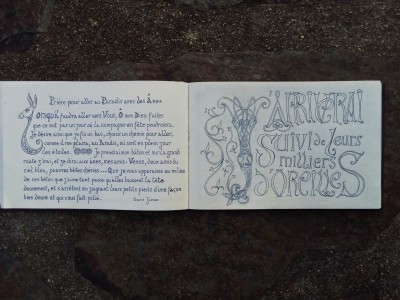 Prière pour aller au Paradis avec les Ânes
Lorsqu'il faudra aller vers Vous, Ô mon Dieu faites
que ce soit par un jour où la campagne en fête poudroiera.
Je désire, ainsi que je fis ici-bas, choisir un chemin pour aller,
comme il me plaira, au Paradis, où sont en plein jour
les étoiles. Je prendrai mon bâton et sur la grande
route j'irai, et je dirai aux ânes, mes amis: Venez, doux amis du
ciel bleu, pauvres bêtes chéries ... Que je vous apparaisse au milieu
de ces bêtes que j'aime tant parce qu'elles baissent la tête
doucement, et s'arrêtent en joignant leurs petits pieds d'une façon
bien douce et qui vous fait pitié.
Francis Jammes
J'ARRIVERAI
Suivi de leurs
milliers
D'OREILLES